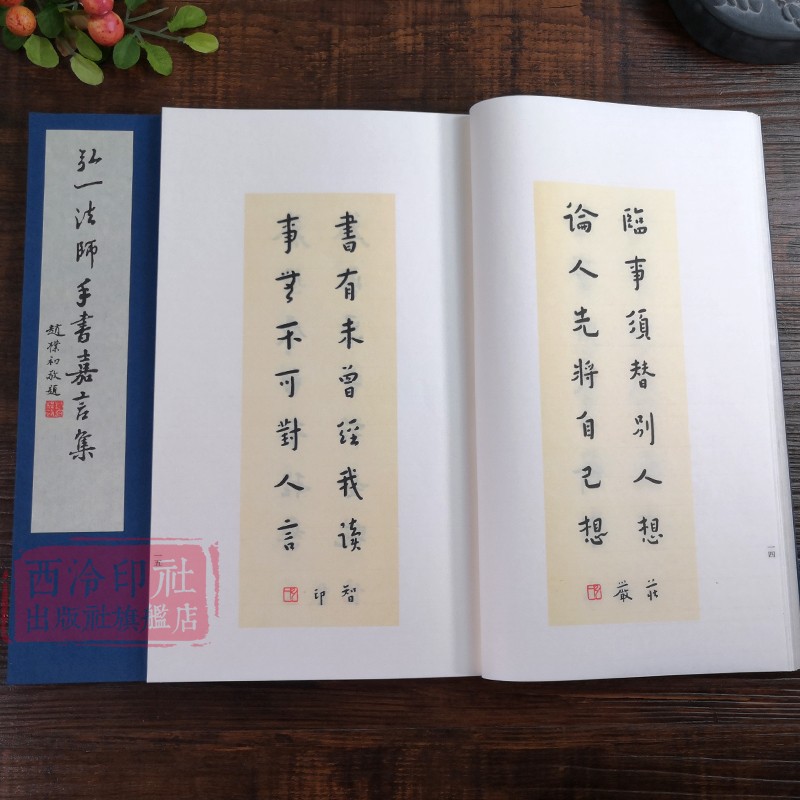 弘一法師手書嘉言集
趙樸初敬題
臨事須替別人想
論人先將自己想
莊嚴
一四
書有未曾經我读
事無不可對人言
智印
一五
西泠印社
出版社旗艦店